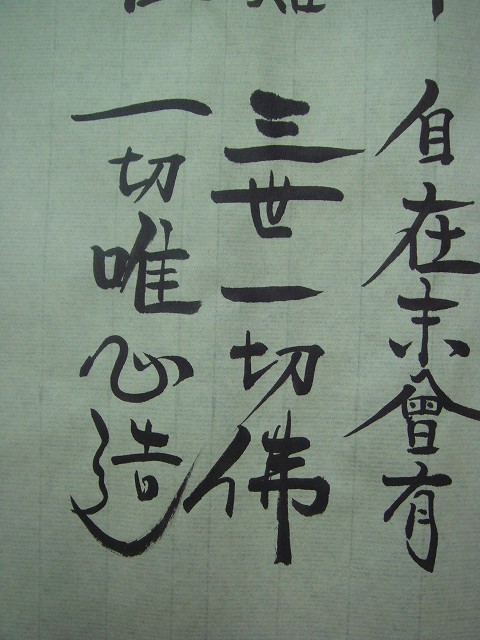 自在未曾有
三世一切佛
一切唯心造